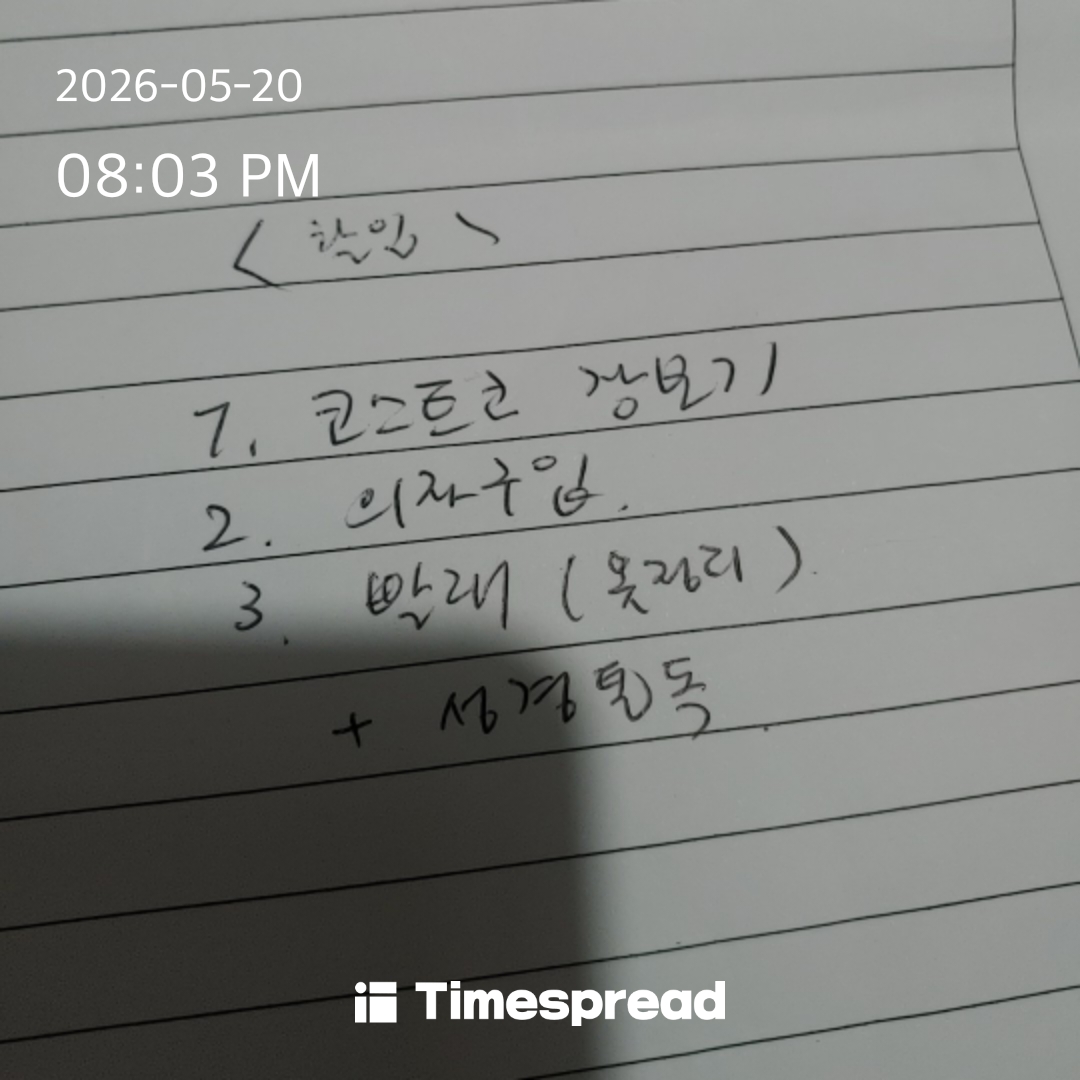 2026-05-20
08:03 PM
< 할일 >
1. 코스트코 장보기
2. 의자구입.
3. 빨래 (옷정리).
+ 성경통독.
Timespread